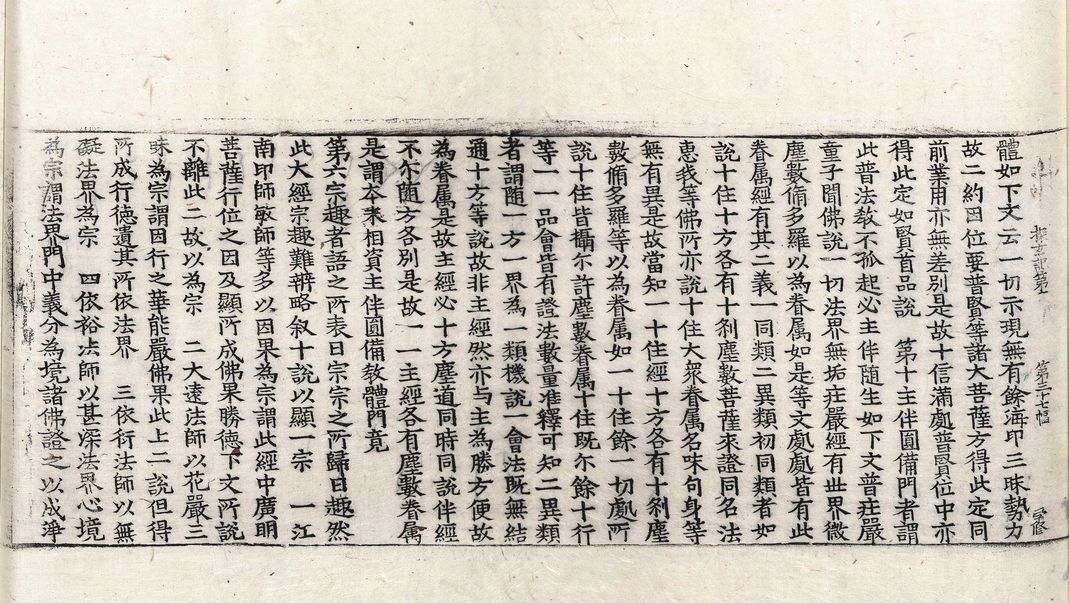 探玄記第一 第三十七幅
體如下文云一切示現無有餘海印三昧勢力
故二約因位要普賢等諸大菩薩方得此定同
前業用亦無差別是故十信滿處普賢位中亦
得此定如賢首品說 第十主伴圓備門者謂
此普法教不孤起必主伴随生如下文普莊嚴
童子聞佛說一切法界無垢庄嚴經有世界微
塵數脩多羅以為眷属如是等文處處皆有此
眷属經有其二義一同類二異類初同類者如
說十住十方各有十刹塵數菩薩來證同名法
惠我等佛所亦說十住大衆眷属名味句身等
無有異是故當知一十住經十方各有十刹塵
數脩多羅等以為眷属如一十住餘一切處所
說十住皆攝尒許塵數眷属十住既尒餘十行
等一一品會皆有證法數量准釋可知二異類
者謂随一方一界為一類機說一會法既無結
通十方等說故非主經然亦与主為勝方便故
為眷属是故主經必十方塵道同時同說伴經
不尒随方各別是故一一主經各有塵數眷属
是謂本末相資主伴圓備教體門竟
第六宗趣者語之所表曰宗宗之所歸曰趣然
此大經宗趣難辨略叙十說以顯一宗 一江
南印師敏師等多以因果為宗謂此經中廣明
菩薩行位之因及顯所成佛果勝德下文所說
不離此二故以為宗 二大遠法師以花嚴三
昧為宗謂因行之華能嚴佛果此上二說但得
所成行德遺其所依法界 三依衍法師以無
礙法界為宗 四依裕法師以甚深法界心境
為宗謂法界門中義分為境諸佛證之以成淨